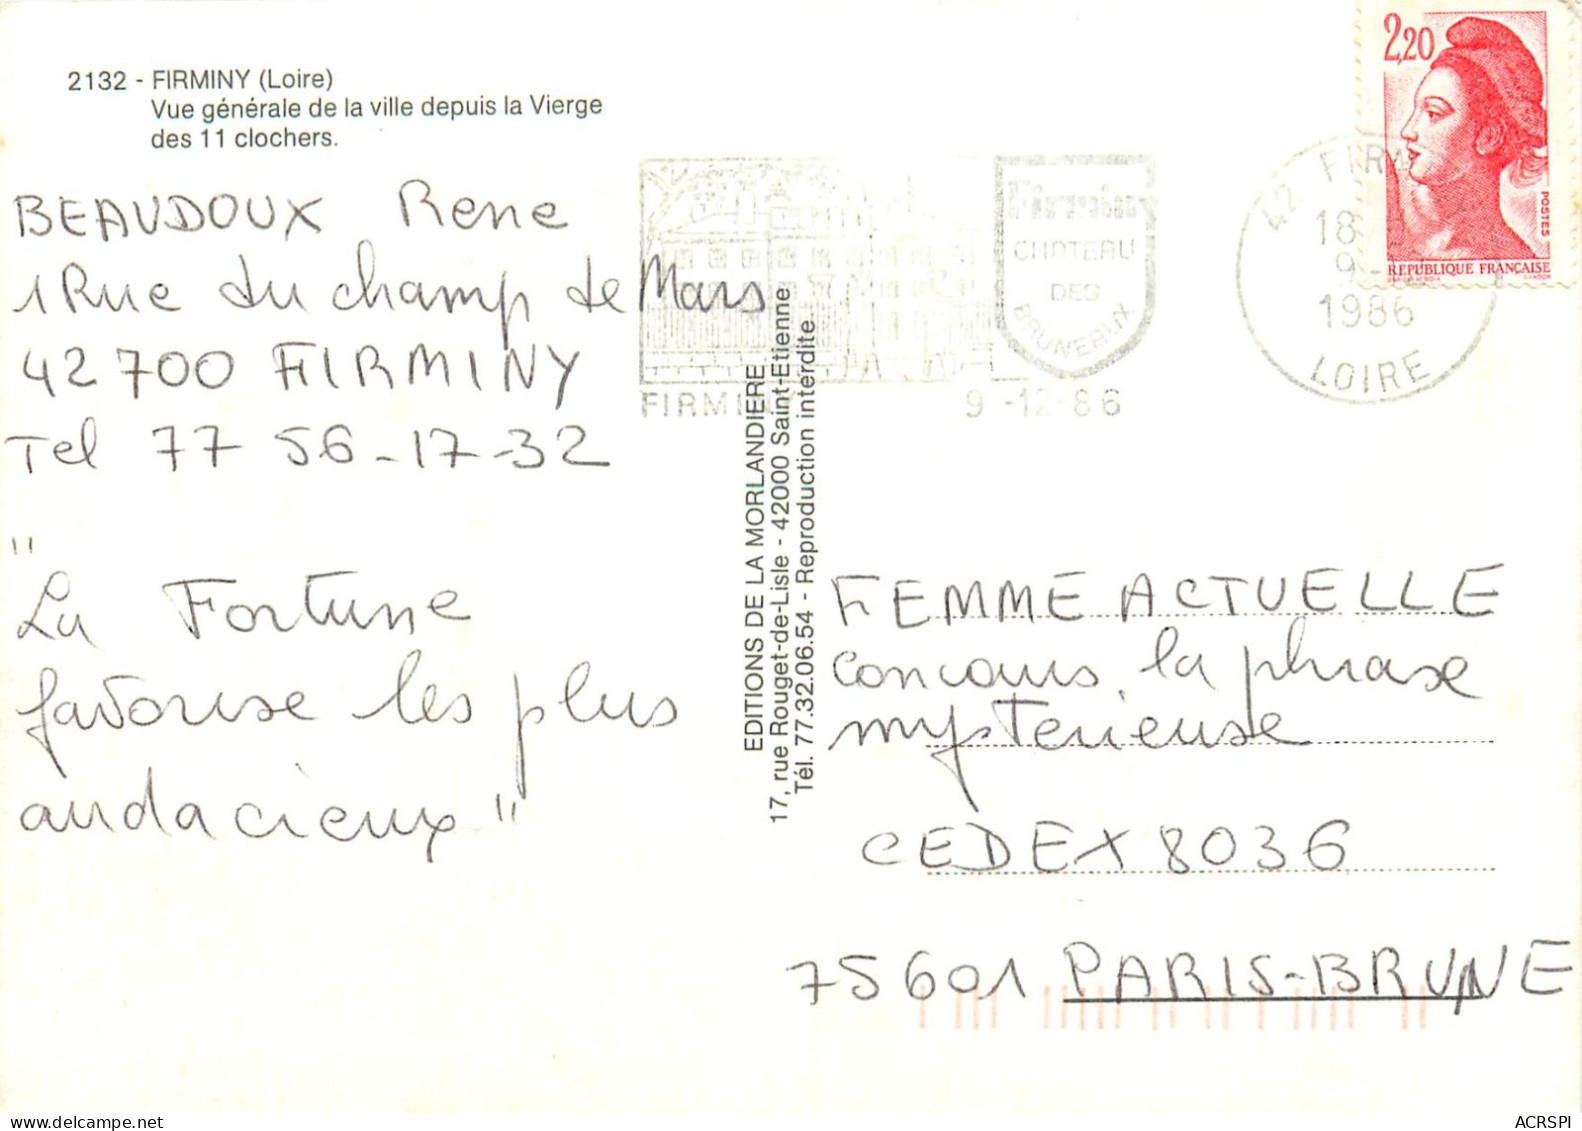 2132 - FIRMINY (Loire)
Vue générale de la ville depuis la Vierge
des 11 clochers.
BEAUDOUX Rene
1 Rue du champ de Mars
42700 FIRMINY
Tel 77 56-17-32
"La Fortune
favorise les plus
audacieux"
FIRMINY
CHATEAU
DES
BRUNEAUX
9 -12-86
42 FIRM
18
9-
1986
LOIRE
2,20
POSTES
REPUBLIQUE FRANÇAISE
EDITIONS DE LA MORLANDIERE
17, rue Rouget-de-Lisle - 42000 Saint-Etienne
Tél. 77.32.06.54 - Reproduction interdite.
FEMME ACTUELLE
concours, la phrase
mysterieuse
CEDEX 8036
75601 PARIS-BRUNE
www.delcampe.net
ACRSPI